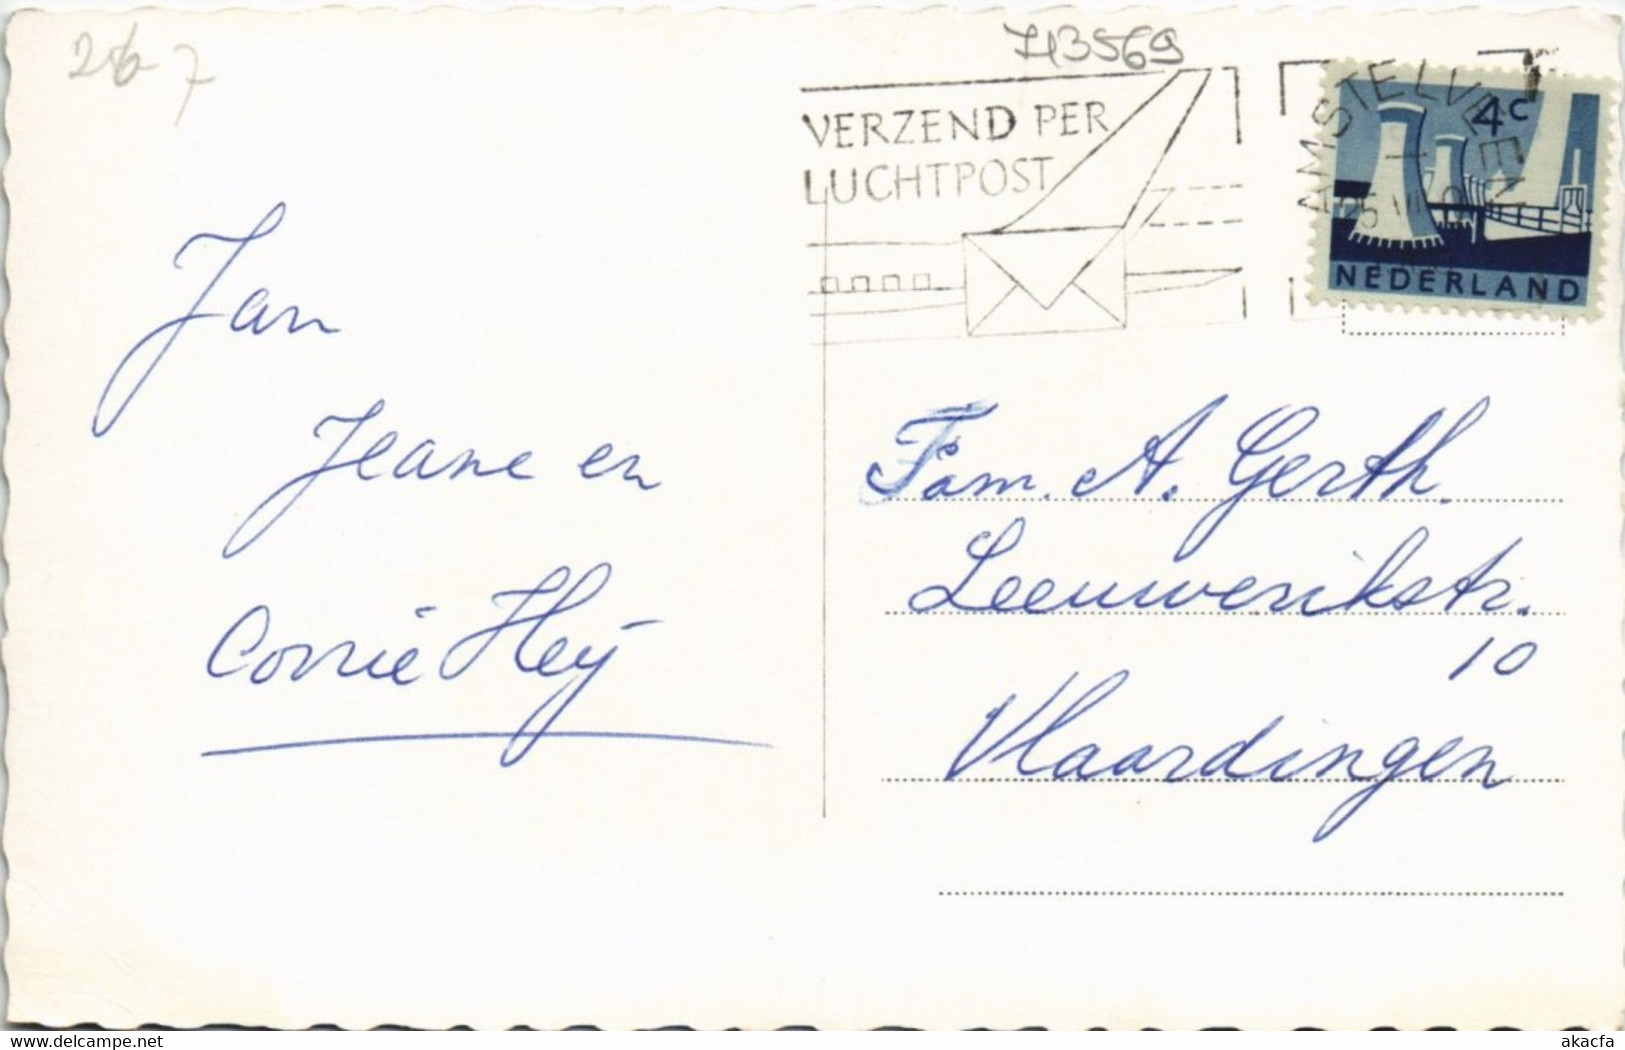 267
743569
VERZEND PER
LUCHTPOST
AMSTELVEEN
4c
NEDERLAND
Jan
Jeane en
Corrie Heÿ
Fam. A. Gerth.
Leeuwerikstr.
10
Vlaardingen
akacfa